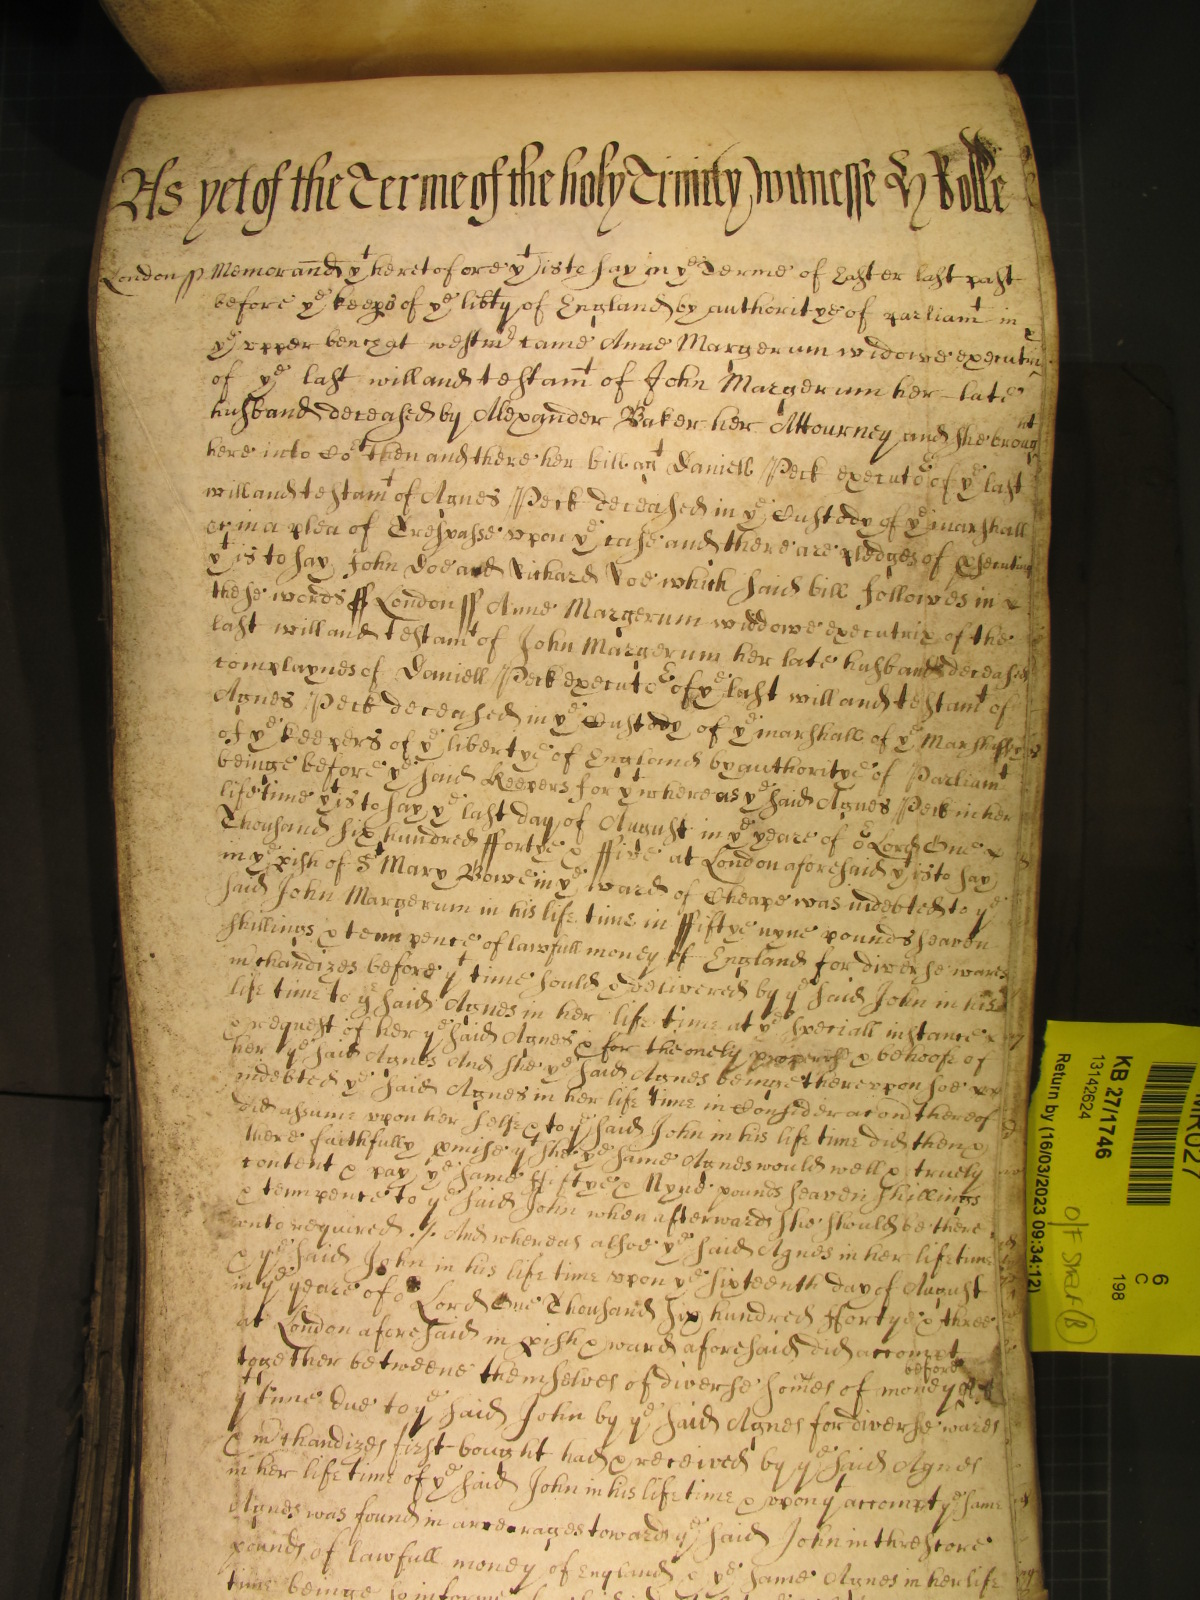 As yet of the Terme of the holy Trinity witnesse H Rolle
London ss Memorand yt heretofore yt is to say in ye Terme of Easter last past
before ye keeps of ye libty of England by authoritye of parliamt in
ye upper bench at westmr came Anne Margerum widowe executrix
of ye last will and testamt of John Margerum her late
husband deceased by Alexander Baker her Attourney and she brought
here into Cot then and there her bill agt Daniell Peck executor of ye last
will and testamt of Agnes Peck deceased in ye Custody of ye marshall
&c in a plea of Trespasse upon ye case and there are pledges of psecuting
yt is to say John Doe and Richard Roe which said bill followes in
these words ss London ss Anne Margerum widdowe executrix of the
last will and testamt of John Margerum her late husband deceased
complaynes of Daniell Peck executor of ye last will and testamt of
Agnes Peck deceased in ye Custody of ye marshall of ye Marshalsye
of ye keepers of ye libertye of England by authoritye of Parliamt
beinge before ye said Keepers for yt whereas ye said Agnes Peck in her
life time yt is to say ye last day of August in ye yeare of or Lord One
Thousand six hundred ffortye & ffive at London aforesaid yt is to say
in ye pish of St Mary Bowe in ye ward of Cheape was indebted to ye
said John Margerum in his life time in ffiftye nyne pounds seaven
shillings & tenn pence of lawfull money of England for diverse wares
mchandizes before yt time sould & delivered by ye said John in his
life time to ye said Agnes in her life time at ye speciall instance
& request of her ye said Agnes & for the onely & behoofe of
her ye said Agnes And she ye said Agnes beinge thereupon soe
indebted ye said Agnes in her life time in Consideracon thereof
did assume upon her selfe & to ye said John in his life time did then &
there faithfully pmise yt she ye same Agnes would well & truely
content & pay ye same ffiftye & Nyne pounds seaven shillings
& tenn pence to ye said John when afterwards she should be there
unto required ./. And whereas alsoe ye said Agnes in her life time
& ye said John in his life time upon ye sixteenth day of August
in ye yeare of or Lord One Thousand six hundred ffortye & three
at London aforesaid in pish & ward aforesaid did accompt
together betweene themselves of diverse somes of money before
yt time due to ye said John by ye said Agnes for diverse wares
& mchandizes first bought had & received by ye said Agnes
in her life time of ye said John in his life time & upon yt accompt ye same
Agnes was found in arrerages towards ye said John in threscore
pounds of lawfull money of England & ye same Agnes in her life
time beinge
KB 27/1746
13142624
Return by (16/03/2023 09:34:12)
6
C
198